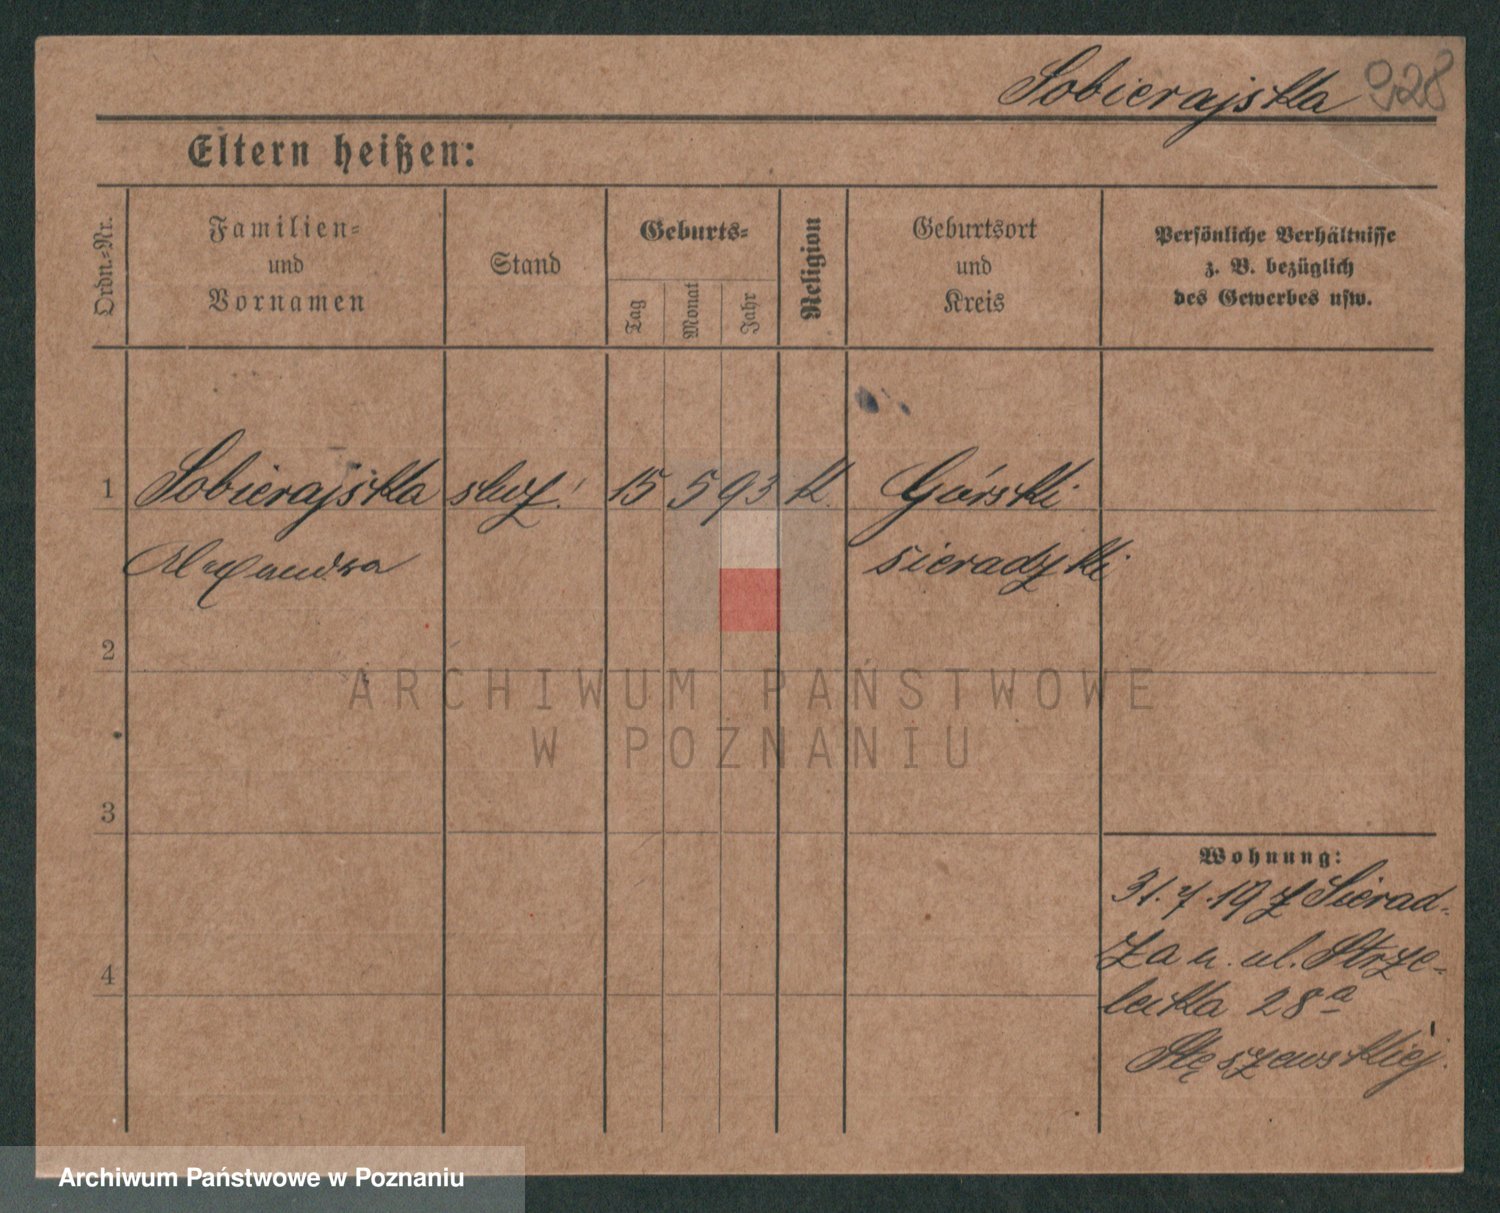 Sobierajska 928
Eltern heißen:
Ordn.-Nr.
Familien-
und
Vornamen
Stand
Geburts-
Tag
Monat
Jahr
Religion
Geburtsort
und
Kreis
Persönliche Verhältnisse
z. B. bezüglich
des Gewerbes usw.
1 Sobierajska służ. 15 5 93 k. Górski
Alexandra sieradzki
2
3
4
Wohnung:
31.7.19 z Sierad-
za u. ul. Strze-
lecka 28a
Stęszewskiej.
ARCHIWUM PAŃSTWOWE
W POZNANIU
Archiwum Państwowe w Poznaniu